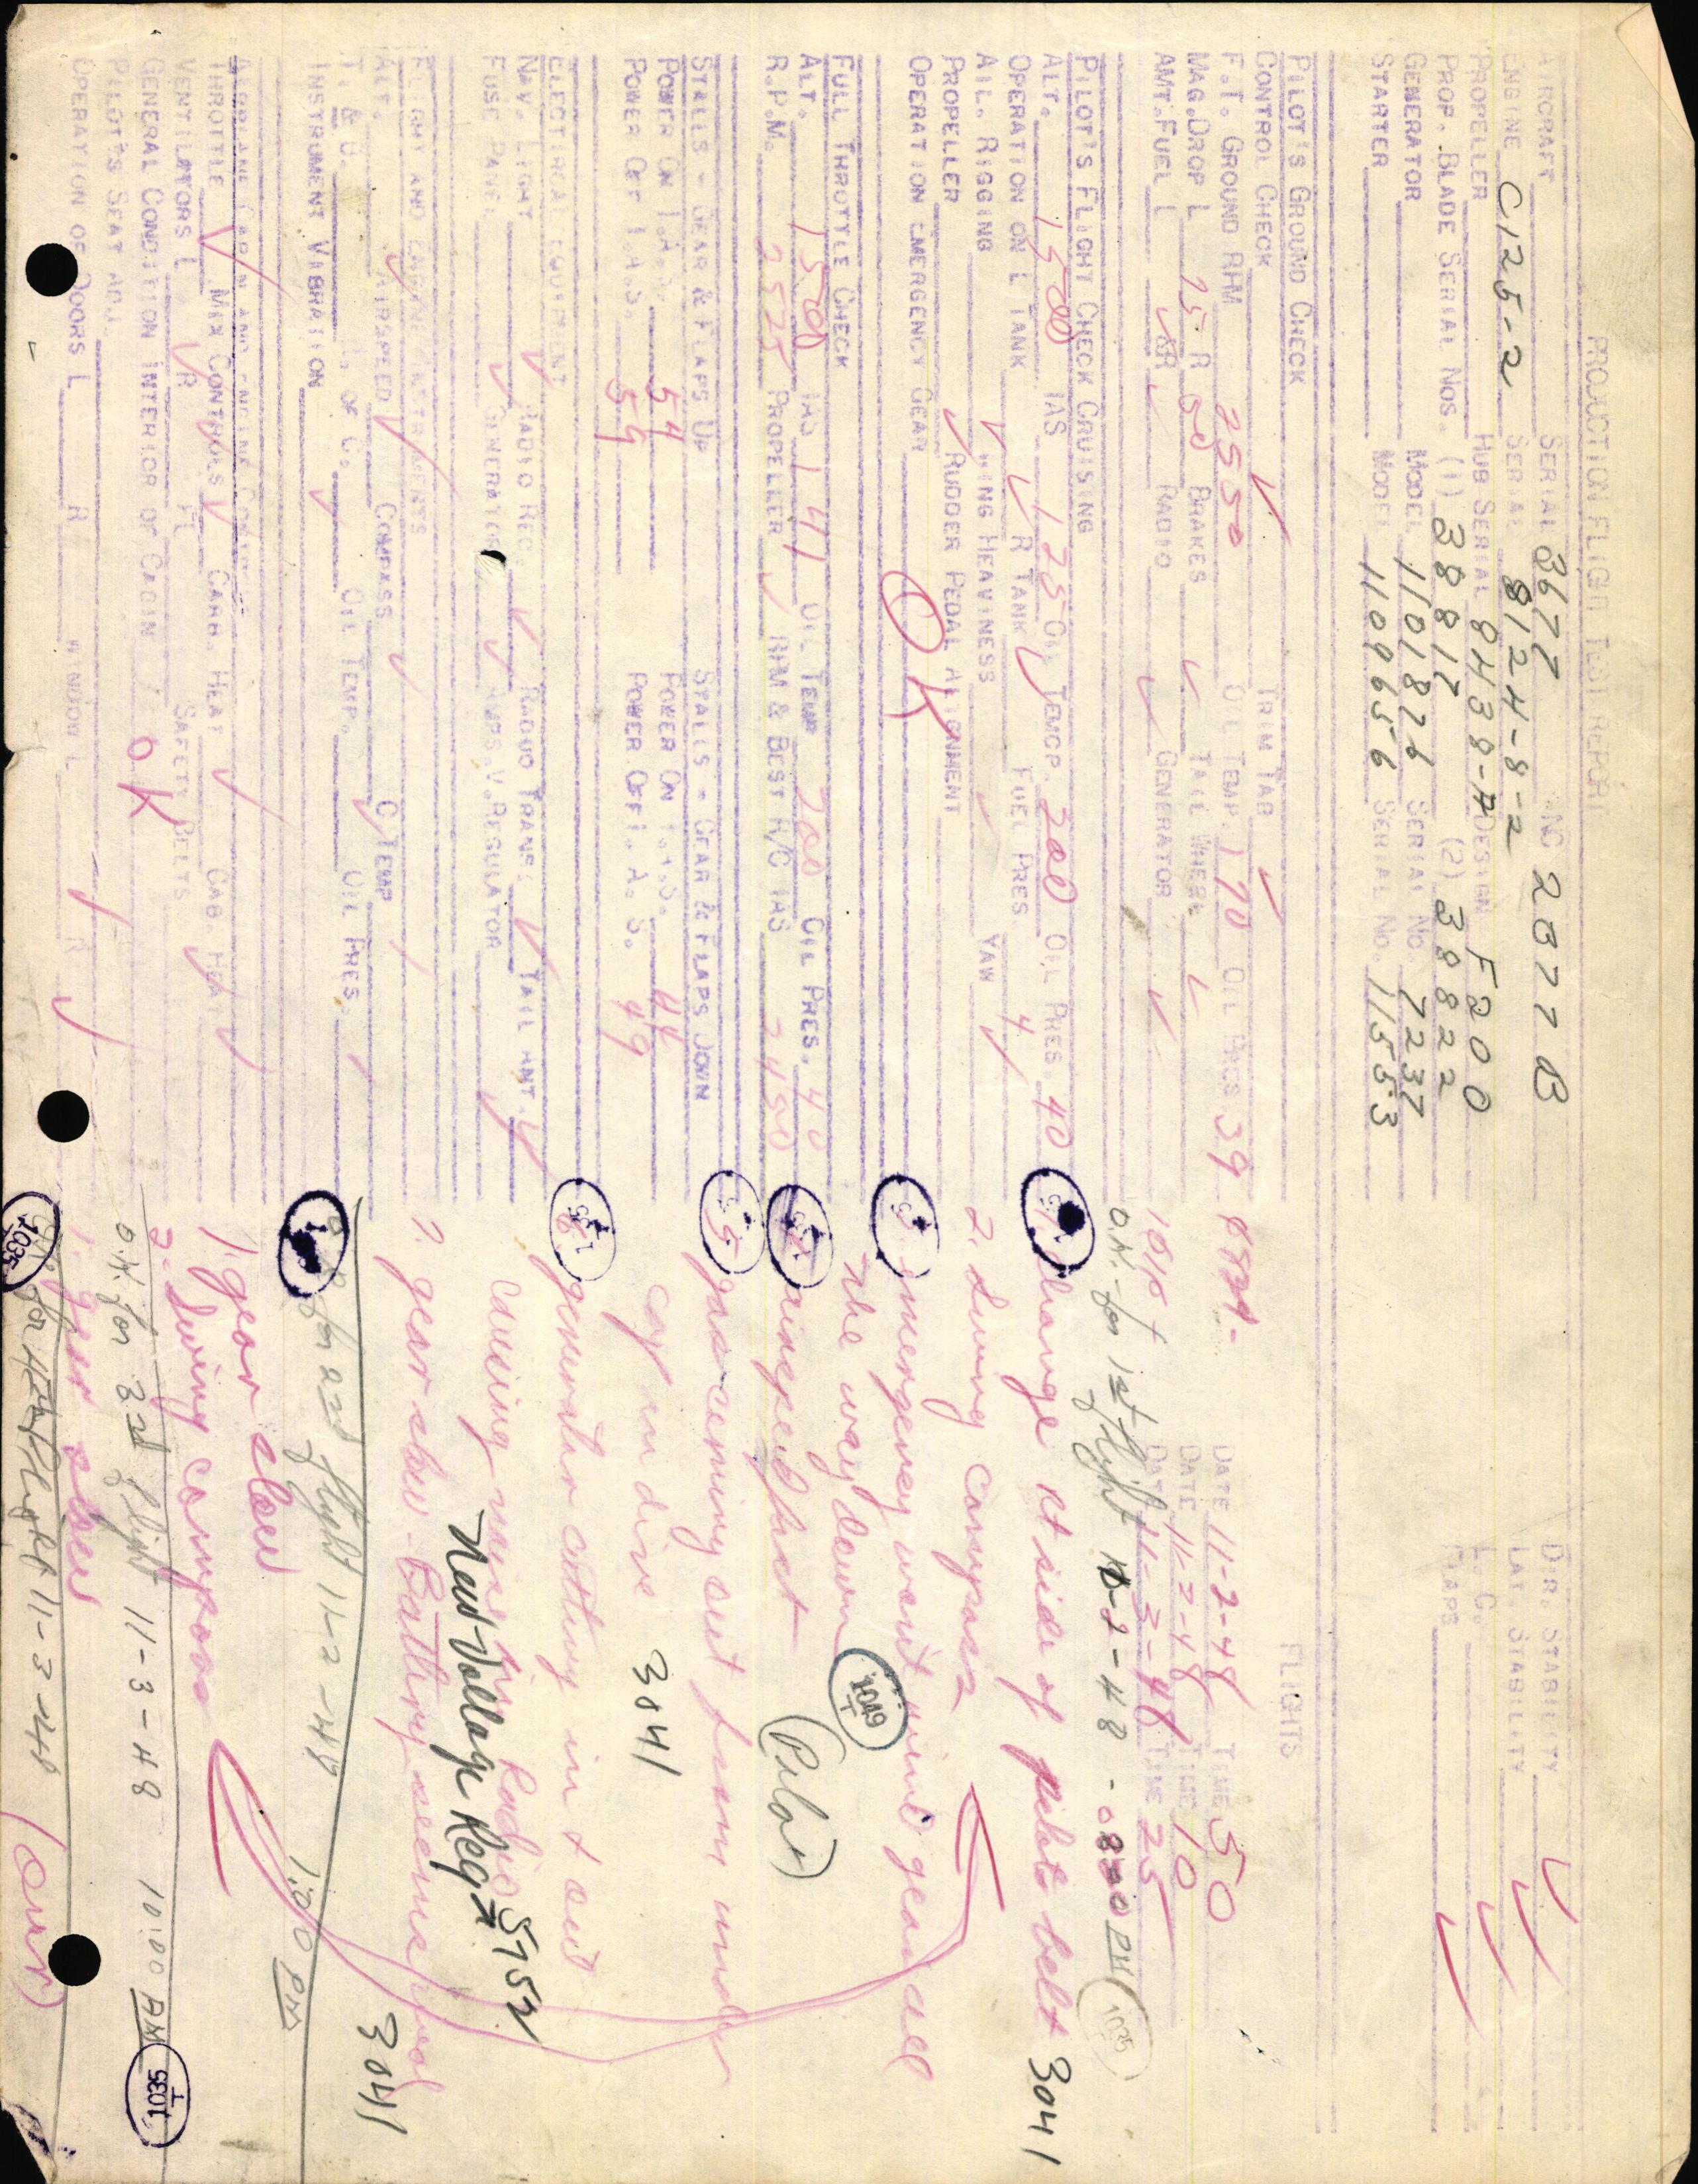 PRODUCTION FLIGHT TEST REPORT
AIRCRAFT SERIAL 3677 NC 2877B DIR. STABILITY ✓
ENGINE C125-2 SERIAL 8124-8-2 LAT. STABILITY ✓
PROPELLER HUB SERIAL 8438-A DESIGN F200 ✓
PROP. BLADE SERIAL NOS. (1) 38817 (2) 38822 FLAPS ✓
GENERATOR MODEL 1101876 SERIAL NO. 7237
STARTER MODEL 1109656 SERIAL NO. 11553
PILOT'S GROUND CHECK FLIGHTS
CONTROL CHECK ✓ TRIM TAB ✓
F.T. GROUND RPM 2550 OIL TEMP. 170 OIL PRES 39 DATE 11-2-48 TIME 50
MAG. DROP L 75 R 50 BRAKES ✓ TAIL WHEEL ✓ DATE 11-2-48 TIME 10
AMT. FUEL L ✓ R ✓ RADIO ✓ GENERATOR ✓ DATE 11-3-48 TIME 25
O.K. for 1st flight
PILOT'S FLIGHT CHECK CRUISING
ALT. 1500 IAS 125 OIL TEMP. 200 OIL PRES. 40 change rt side of pilots belt 3041
OPERATION ON L TANK ✓ R TANK ✓ FUEL PRES 4
AIL. RIGGING ✓ WING HEAVINESS ✓ YAW ✓ 2. Swing compass
PROPELLER ✓ RUDDER PEDAL ALIGNMENT
OPERATION EMERGENCY GEAR OK emergency wont wind gear all
the way down 1049 T
FULL THROTTLE CHECK
ALT. 1500 IAS 141 OIL TEMP 200 OIL PRES. 40 airspeed fast (Pilot)
R.P.M. 2575 PROPELLER ✓ RPM & BEST R/C IAS 2450
STALLS - GEAR & FLAPS UP STALLS - GEAR & FLAPS DOWN gas coming out from under
POWER ON I.A.S. 54 POWER ON I.A.S. 44 cap in dive 3041
POWER OFF I.A.S. 59 POWER OFF I.A.S. 49
ELECTRICAL EQUIPMENT generator cutting in & out
NAV. LIGHT ✓ RADIO REC. ✓ RADIO TRANS. ✓ TAIL ANT. ✓ causing noise in Radio
FUSE PANEL ✓ GENERATOR ✓ AMPS. V. REGULATOR New Voltage Reg 5752
FLIGHT AND ENGINE INSTRUMENTS 7. gear slow - Battery seems weak
ALT. ✓ AIRSPEED ✓ COMPASS ✓ C. TEMP ✓ 3041
T. & B. OIL TEMP. ✓ OIL PRES. ✓
INSTRUMENT VIBRATION ✓ for 2nd flight 11-2-48 1:00 PM
AIRPLANE CABIN AND ENGINE CONTROLS
THROTTLE ✓ MIX CONTROLS ✓ CARB. HEAT ✓ CAB. HEAT ✓ 1. gear slow
VENTILATORS L ✓ R ✓ SAFETY BELTS 2. Swing compass
GENERAL CONDITION INTERIOR OF CABIN OK
PILOT'S SEAT ADJ. O.K. for 3rd flight 11-3-48 10:00 AM 1035 T
OPERATION OF DOORS L R WINDOW L ✓ R ✓ 1. gear slow
1035 for 4th Flight 11-3-48 (over)